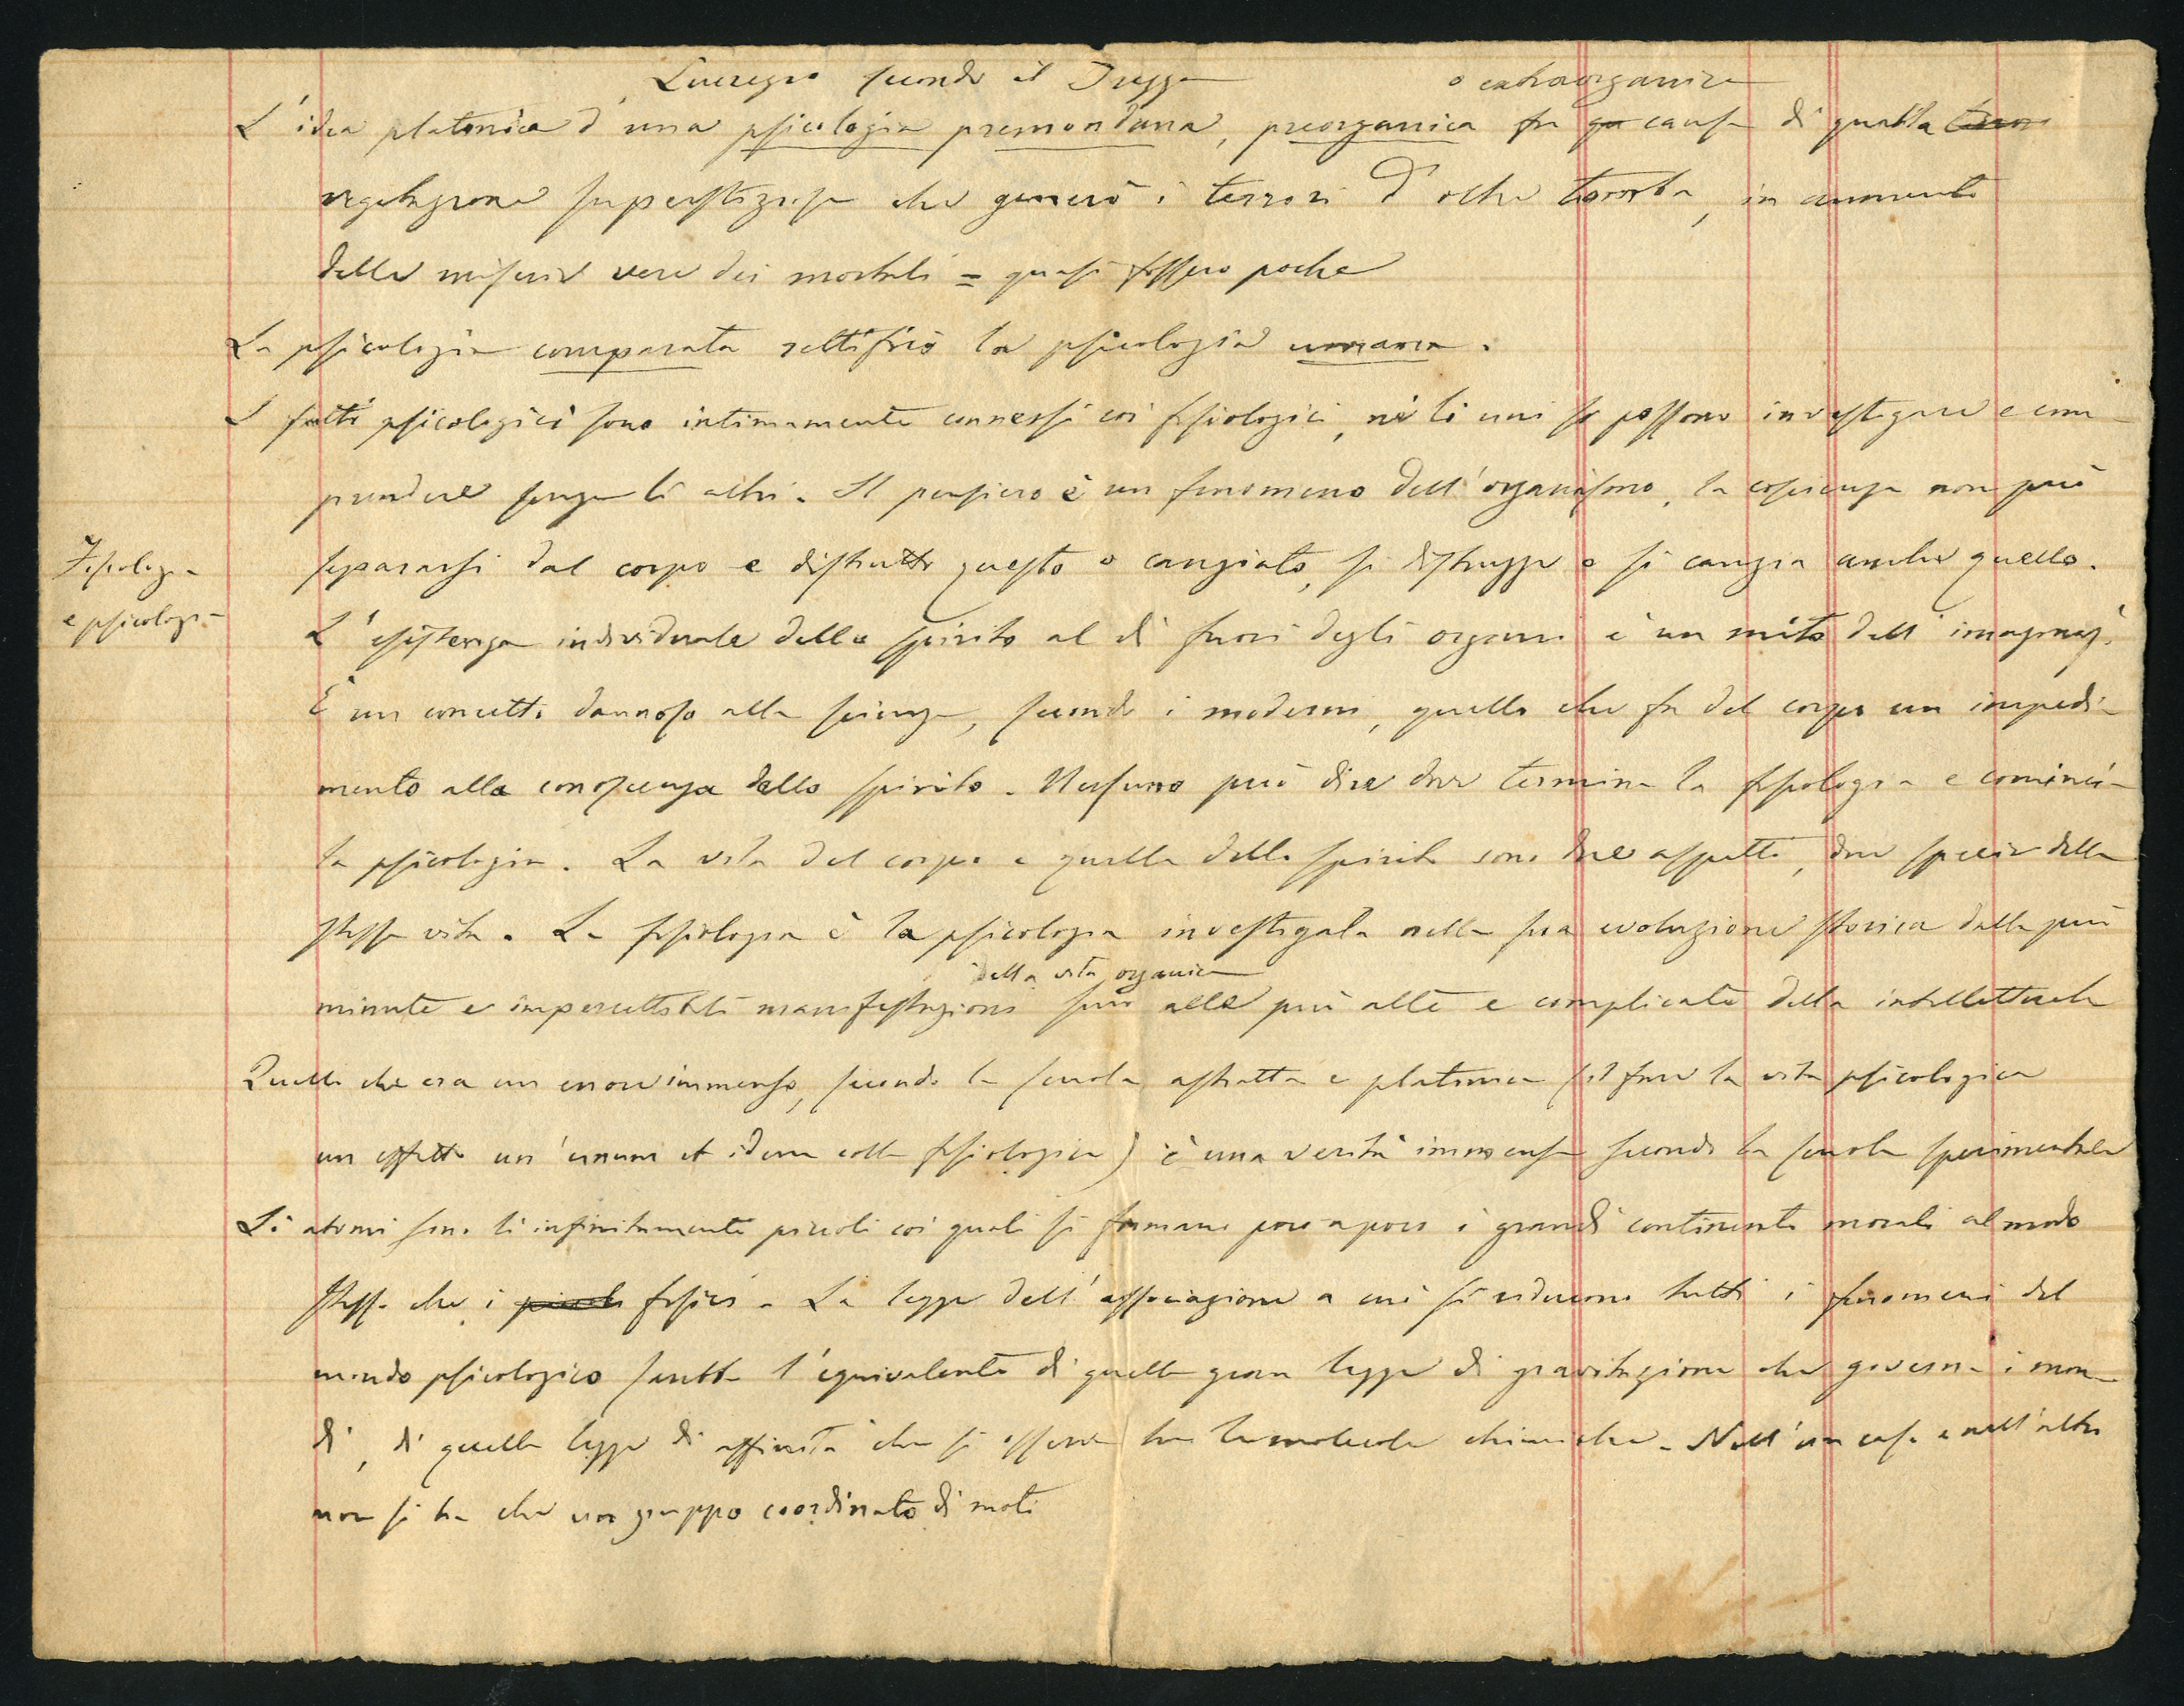 Lucrezio secondo il Trezza
o extraorganica
L'idea platonica d'una psicologia premondana, preorganica fu causa di quella
vegetazione superstiziosa che generò i terrori d'oltre tomba, in aumento
delle miserie vere dei mortali = quasi fossero poche
La psicologia comparata rettificò la psicologia umana.
I fatti psicologici sono intimamente connessi coi fisiologici, nè li uni si possono investigare e com
prendere senza li altri. Il pensiero è un fenomeno dell'organismo, la coscienza non può
separarsi dal corpo e distrutto questo o cangiato, si distrugge o si cangia anche quello.
Fisiologia
e psicologia
L'esistenza individuale dello spirito al di fuori degli organi è un mito dell'imaginaz.
È un concetto dannoso alla scienza, secondo i moderni, quello che fa del corpo un impedi-
mento alla conoscenza dello spirito. Nessuno può dire dove termina la fisiologia e comincia
la psicologia. La vita del corpo e quella dello spirito sono due aspetti, due specie della
stessa vita. La fisiologia è la psicologia investigata nella sua evoluzione storica dalle più
della vita organica
minute e impercettibili manifestazioni sino alle più alte e complicate della intellettuale
Quello che era un errore immenso, secondo la scuola astratta e platonica (il fare la vita psicologica
un effetto un'unum et idem colla fisiologica) è una verità immensa secondo la scuola sperimentale
Li atomi sono li infinitamente piccoli coi quali si formano poco a poco i grandi continenti morali al modo
stesso che i piccoli fisici. La legge dell'associazione a cui si riducono tutti i fenomeni del
mondo psicologico sarebbe l'equivalente di quella gran legge di gravitazione che governa i mon
di, di quella legge di affinità che si osserva tra le molecole chimiche. Nell'un caso e nell'altro
non si ha che un gruppo coordinato di moti